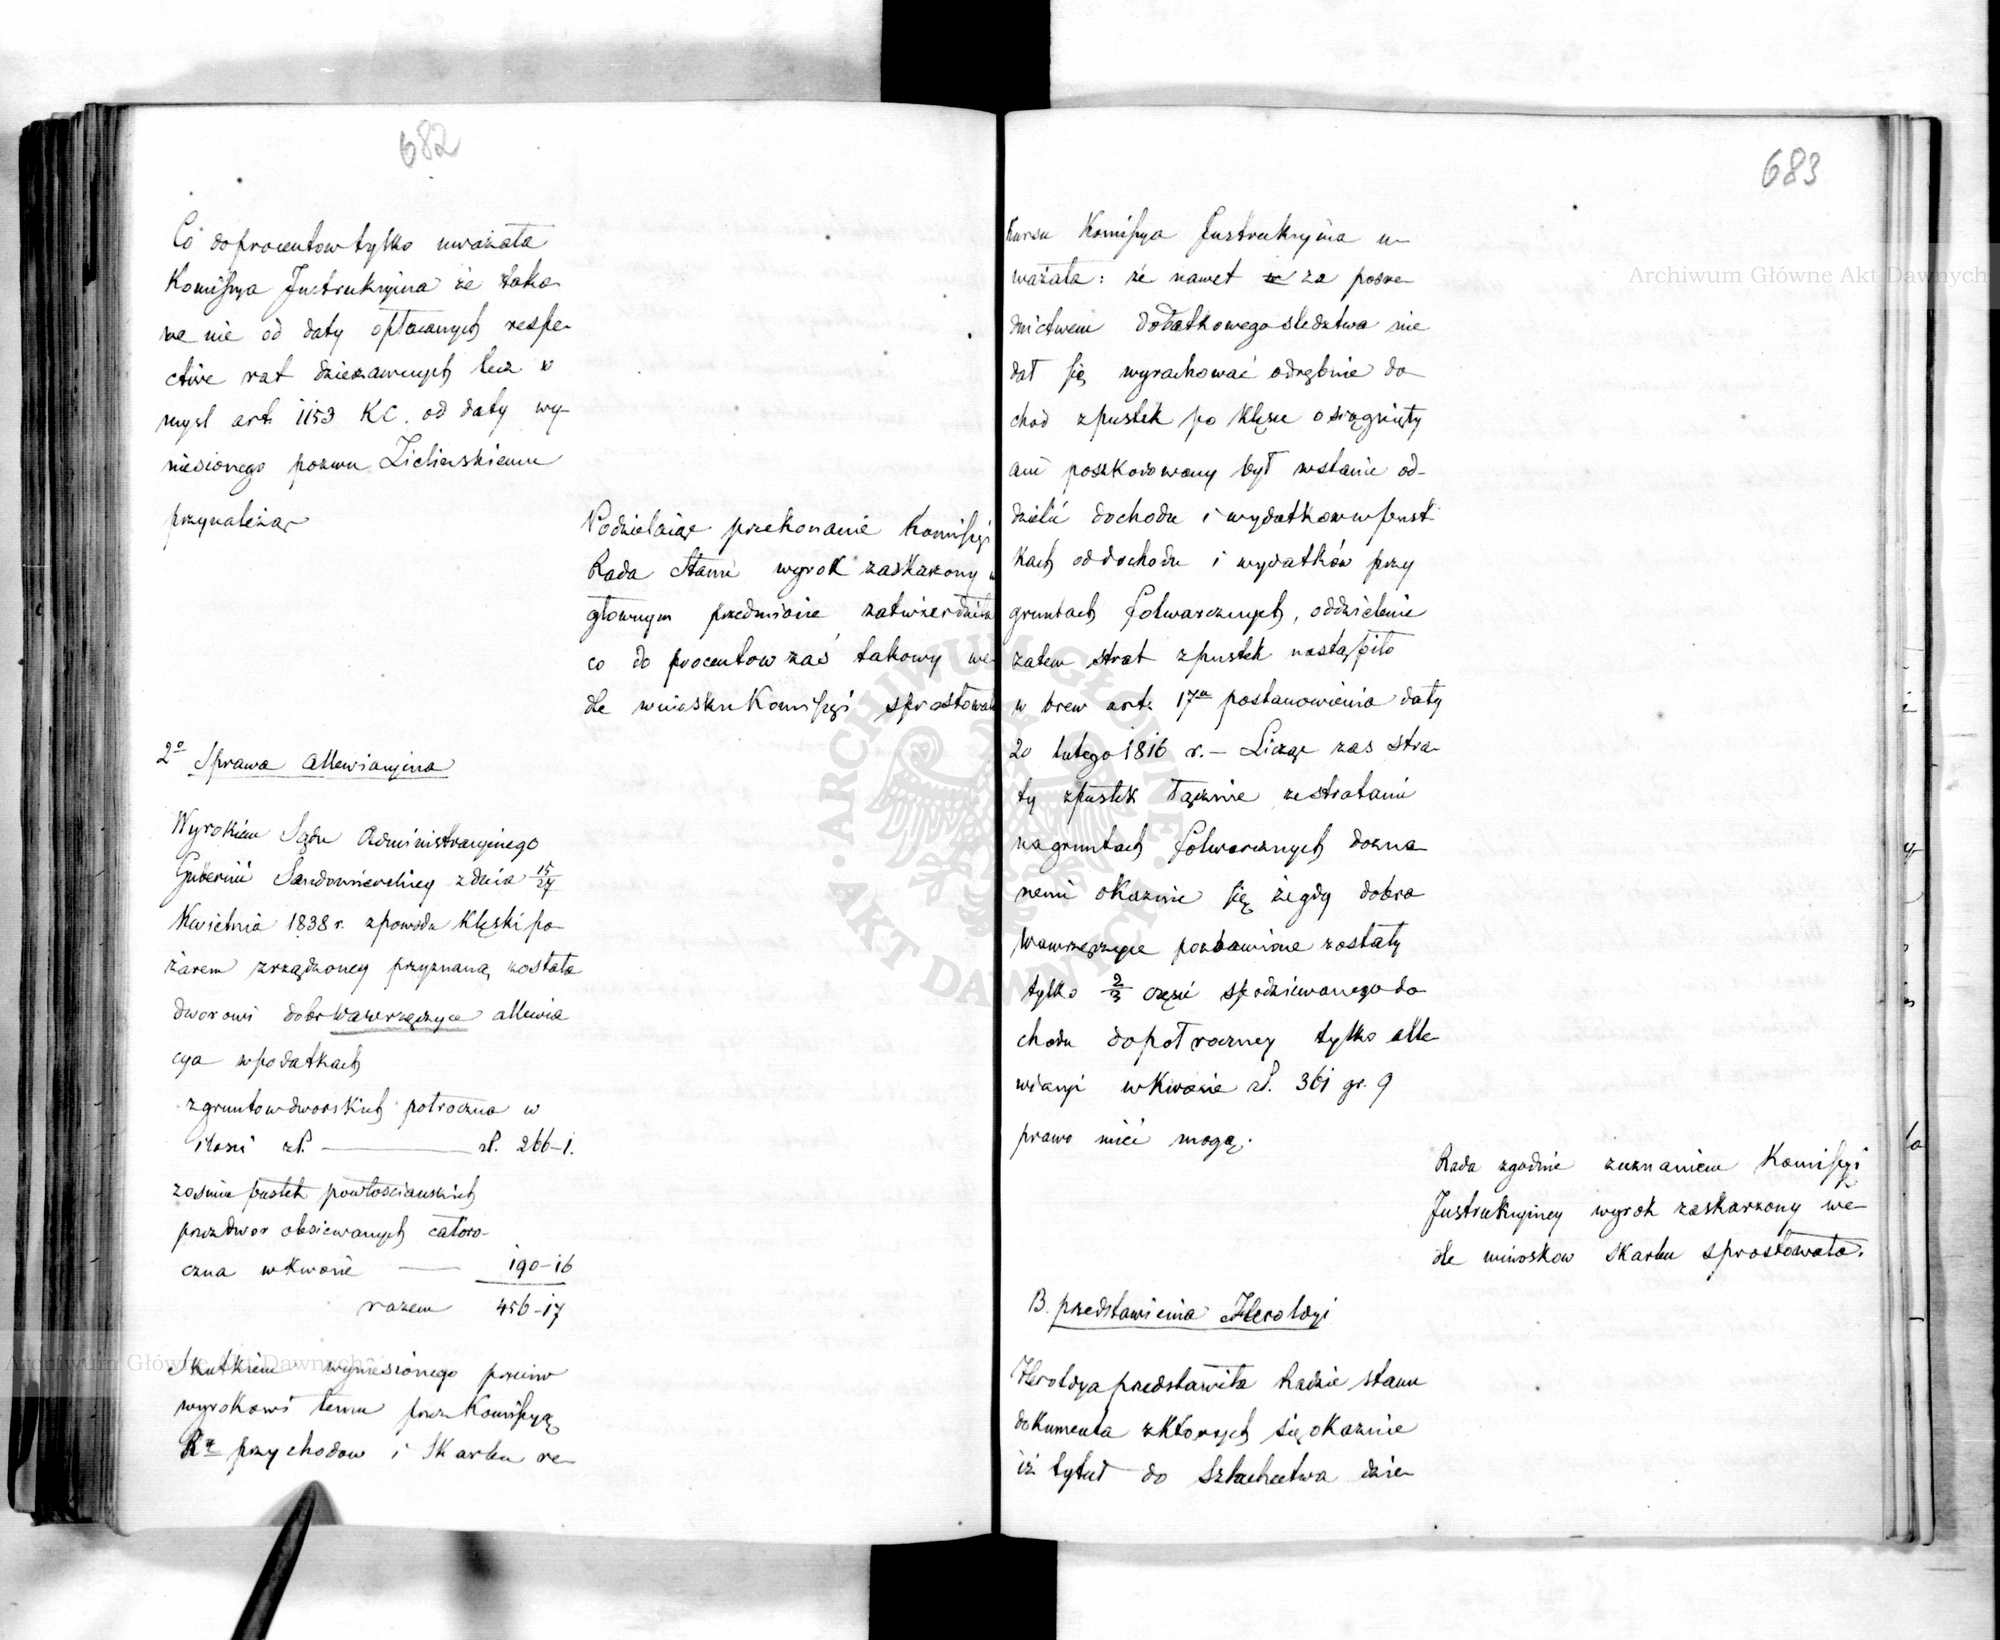 682
Co do procentow tylko uważała
Kommissya Instrukcyina że tako-
we nie od daty opłacanych respe-
ctive rat dzierzawnych lecz w
mysl art. 1153 KC. od daty wy-
niesionego pozwu Zielinskiemu
przynależą
Podzielaiąc przekonanie Komissyi
Rada Stanu wyrok zaskarzony w
głownym przedmiocie zatwierdziła
co do procentow zaś takowy we-
dle wniosku Komissyi sprostowała
2o Sprawa allewiacyina
Wyrokiem Sądu Administracyinego
Gubernii Sandomierskiey z dnia 15/27
Kwietnia 1838 r. z powodu klęski po-
żarem zrządzoney przyznaną została
dworowi dobr Wawrzęczyce allewia
cya w podatkach
z gruntow dworskich potroczna w
ilosci zł. ——— zł. 266-1.
zosmiu pustek powłościanskich
przez dwor obsiewanych całoro-
czna w kwocie —— 190-16
razem 456-17
Skutkiem wyniesionego przeciw
wyrokowi temu przez Komissyą
Rz. przychodow i Skarbu re-
683
kursu Komissya Instrukcyina u-
ważała: że nawet za posre-
dnictwem dodatkowego sledztwa nie
dał się wyrachować odrębnie do-
chod z pustek po klęsce osiągnięty
ani poszkodowany był w stanie od-
dzielić dochodu i wydatkow w pust-
kach od dochodu i wydatków przy
gruntach folwarcznych, oddzielenie
zatem strat z pustek nastąpiło
w brew art. 17u postanowienia daty
20 lutego 1816 r. – Licząc zas stra-
ty z pustek łącznie ze stratami
na gruntach folwarcznych dozna-
nemi okazuie się że gdy dobra
Wawrzęczyce pozbawione zostały
tylko 2/3 części spodziewanego do-
chodu do połroczney tylko alle-
wiacyi w kwocie zł. 361 gr. 9
prawo mieć mogą.
Rada zgodnie z uznaniem Komissyi
Instrukcyiney wyrok zaskarzony we-
dle wniosków Skarbu sprostowała.
B. przedstawienia Heroldyi
Heroldya przedstawiła Radzie Stanu
dokumenta z ktorych się okazuie
iż tytuł do Szlachectwa dzie-
Archiwum Główne Akt Dawnych
Archiwum Główne Akt Dawnych
ARCHIWUM GŁÓWNE · AKT DAWNYCH ·